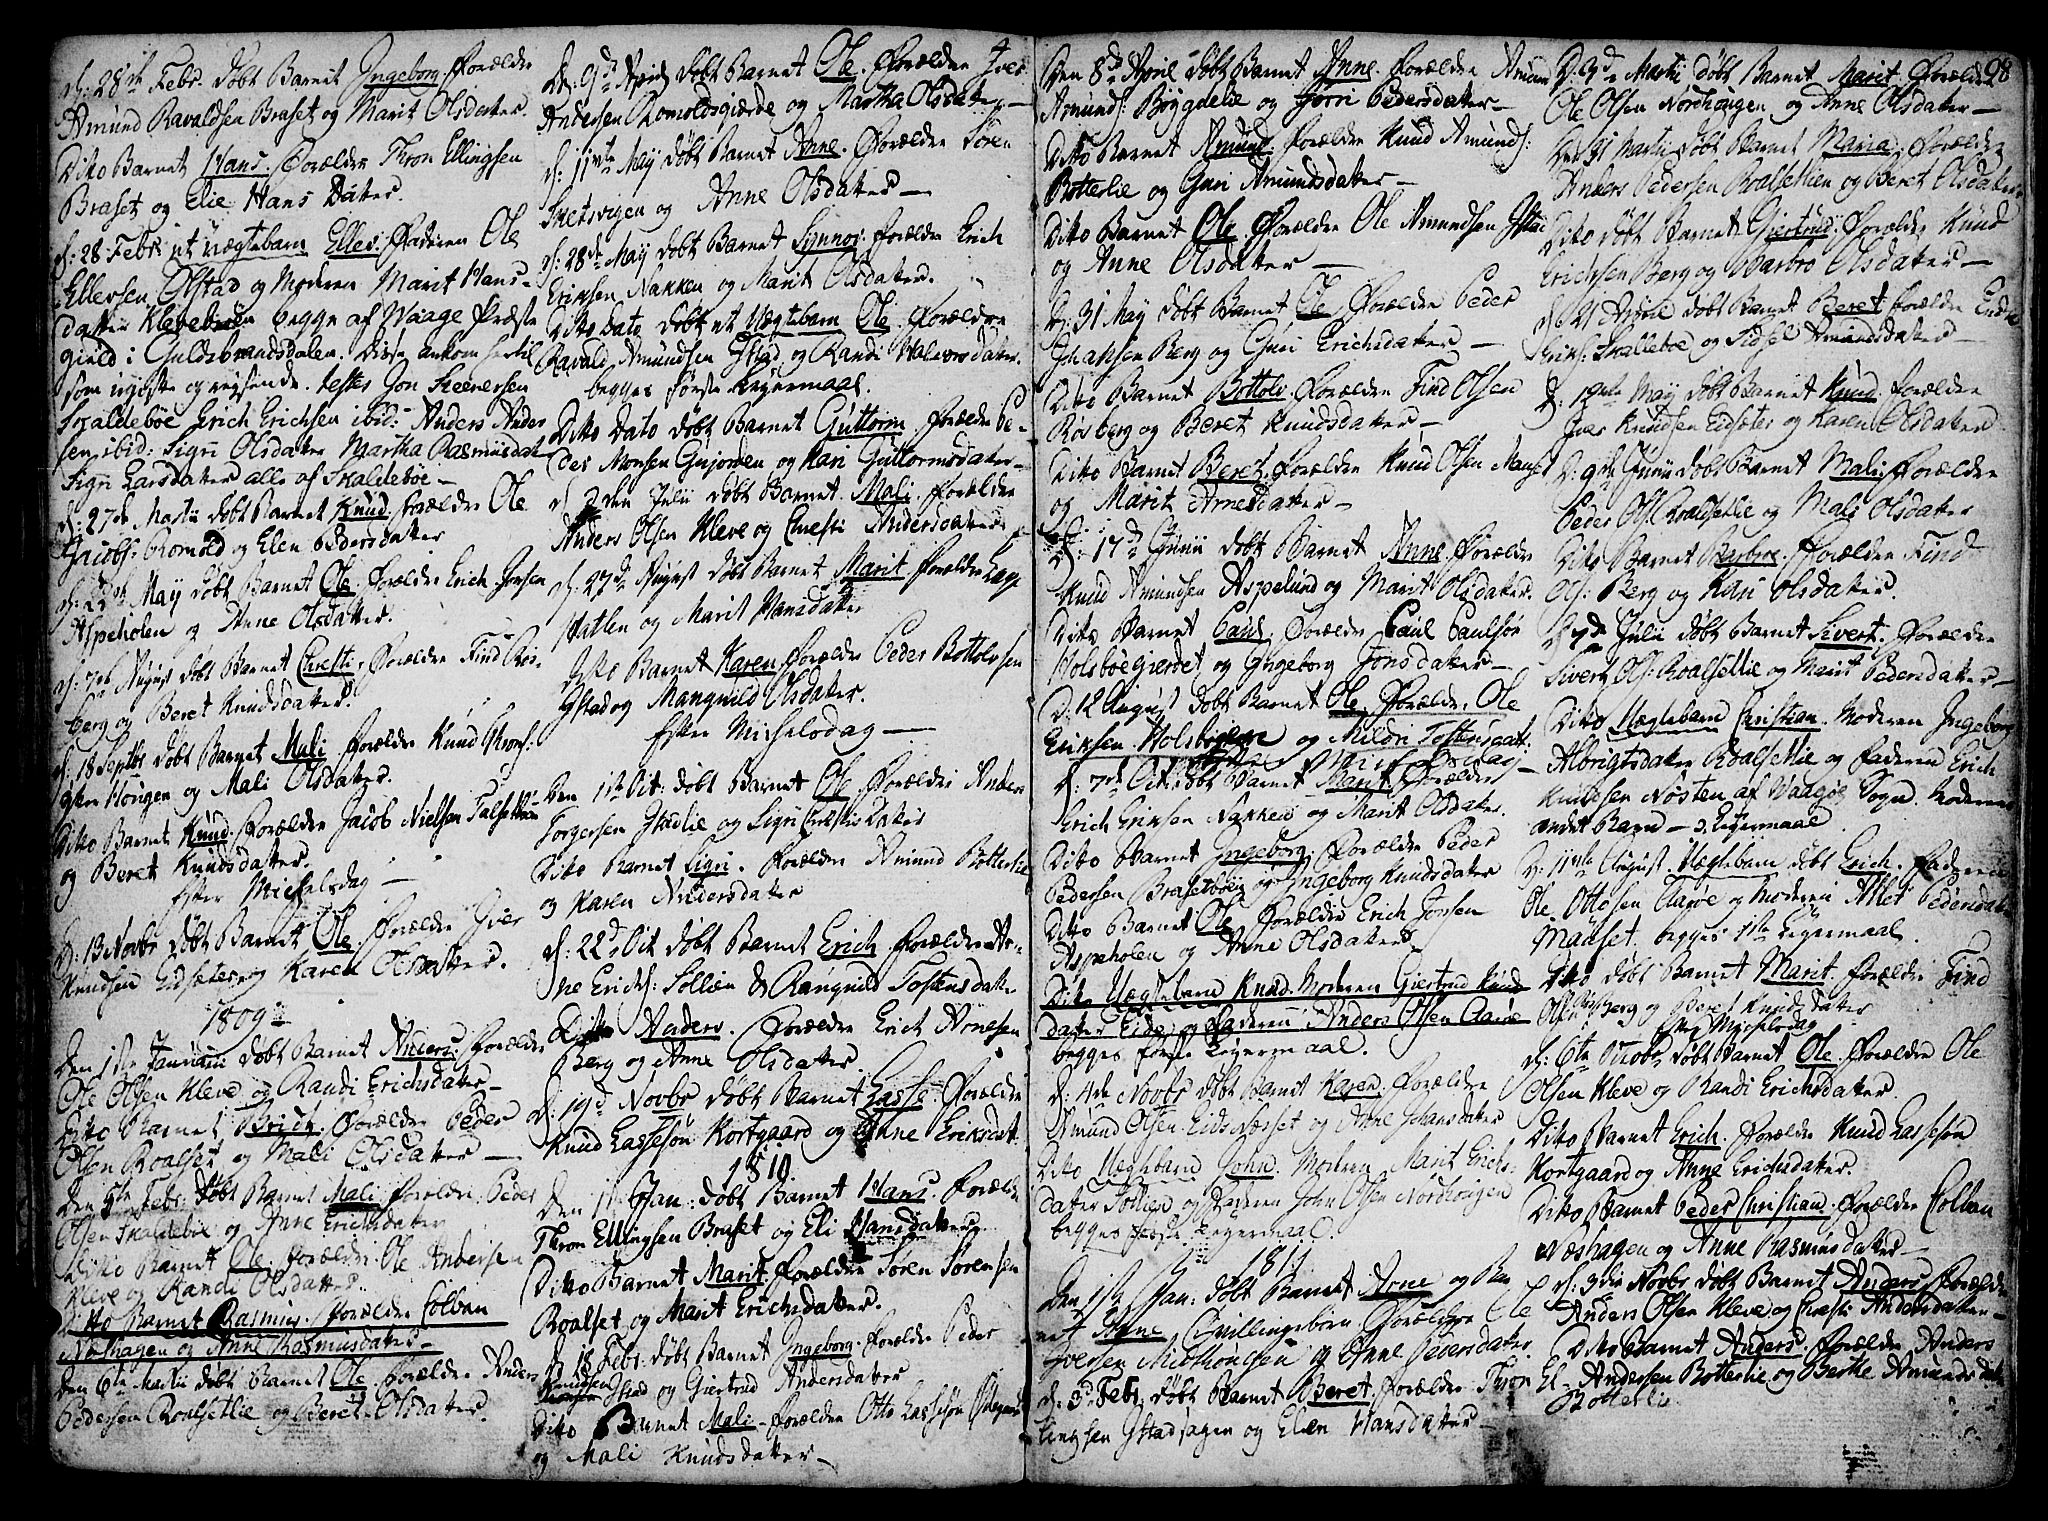 d: 28de Febr. døbt Barnet Ingeborg. Forældre
Amund Ravaldsen Braset og Marit Olsdater.
Dito Barnet Hans. Forældre Thron Ellingsen
Braset og Elie Hans Dater.
d: 28 Febr. et uægtebarn Elles. Faderen Ole
Ellersen Ølstad og Moderen Marit Hans-
datter Kleve begge af Waage Præste
gield i Guldbrandsdalen. Disse ankom hertil
som ugifte og reisende. testes Jon
Skaldebøe Erich Erichsen ibid: Anders Ander
sen ibid: Sigri Olsdater Martha Rasmusdat
Sigri Larsdater alle af Skaldebøe —
d: 27de Martii døbt Barnet Knud. forældre Ole
Jacobs: Romold og Elen Pedersdater
May døbt Barnet Ole. forældre Erich Jonsen
Aspeholen og Anne Olsdater.
d: 7de August døbt Barnet Chresti. forældre Find Ros-
berg og Beret Knudsdater.
d: 18 Septbr døbt Barnet Mali forældre Knud Throns:
Hougen og Mali Olsdater.
Dito Barnet Knud. forældre Jacob Nielsen
og Beret Knudsdater.
Efter Michelsdag —
D: 13 Novbr døbt Barnet Ole. forældre Iver
Knudsen Eidsæter og Karen Olsdater.
1809
Den 1ste Januarii døbt Barnet Anders. forældre
Ole Olsen Kleve og Randi Erichsdater —
Dito Barnet Brith. forældre Peder
Olsen Roalset og Mali Olsdater —
den 5te Febr: døbt Barnet Mali forældre Peder
Olsen Skaldebøe og Anne Erichsdater
Dito Barnet Ole. forældre Ole Andersen
Kleve og Randi Olsdatter.
Dito Barnet Rasmus. forældre Colban
Næshagen og Anne Rasmusdater —
den 6te Martii døbt Barnet Ole. forældre Anders
Pedersen Roalsetlie og Beret Olsdater.
D: 9de døbt Barnet Ole. forældre Iver
Andersen Romoldsgierde og Martha Olsdater —
d: 11te May døbt Barnet Anne. forældre Sören
og Anne Olsdater —
d: 28de May døbt Barnet Synnov. forældre Erich
Eriksen Nakken og Marit Olsdater.
Dito Dato døbt et Uægtebarn Ole. forældre
Ravald Amundsen Ystad og Randi Halvorsdater.
begges første Leiermaal.
Dito Dato døbt Barnet Guttorm. forældre Pe-
der Monsen Gujorden og Kari Guttormsdater —
d: 2den Julii døbt Barnet Mali. forældre
Anders Olsen Kleve og Chresti Andersdater
d: 27de August døbt Barnet Marit forældre
Hatlen og Marit Hansdater
Dito Barnet Karen. forældre Peder Bottolvsen
Ystad og Olsdater.
Efter Michelsdag —
Den 1ste Oct: døbt Barnet Ole forældre Anders
Torgersen og Sigri
Dito Barnet Sigri. forældre Amund Botterlie
og Karen Andersdater
d: 22de Oct døbt Barnet Erich forældre Ar-
ne Erichs: Sollien & Rangnild Tostensdater
Dito Anders. forældre Erich Arnesen
Berg og Anne Olsdater.
d: 19d Novbr døbt Barnet Lasse. forældre
Knud Lassesøn Kortgaard og Anne Eriksdat
1810
Den 1ste Jan: døbt Barnet Hans. forældre
Thron Ellingsen Braset og Eli Hansdater
Dito Barnet Marit. forældre Sören Sörensen
Roalset og Marit Erichsdater.
d: 18 Febr. døbt Barnet Ingeborg. forældre Peder
Knudsen Ystad og Giertrud Andersdater
Dito Barnet Mali — forældre Otto Lassesøn
og Mali Knudsdater —
Den 8de April døbt Barnet Anne. forældre Amun
Amunds: Bøygdelie og Pedersdater —
Dito Barnet Amund. forældre Knud Amunds:
Botterlie og Guri Amundsdater —
Dito Barnet Ole. forældre Ole Amundsen Ystad
og Anne Olsdater —
D: 31 May døbt Barnet Ole. forældre Peder
Johansen Berg og Guri Erichsdater —
Dito Barnet Bottolv. forældre Find Olsen
Rosberg og Beret Knudsdater —
Dito Barnet Beret. forældre Knud Olsen
og Marit Arnesdater —
D: 17de Junii døbt Barnet Anne. forældre
Knud Amundsen Aspelund og Marit Olsdater.
Dito Barnet Paul. forældre Paul Paulsøn
Holsbøegierdet og Ingeborg Jonsdater —
D: 12 August døbt Barnet Ole. forældre Ole
Eriksen Holsbøe og Mildri
d: 7de Oct: døbt Barnet Marit. forældre
Erich Eriksen Nakken og Marit Olsdater.
Dito Barnet Ingeborg. forældre Peder
Pedersen Brasetbøen og Ingeborg Knudsdater
Dito Barnet Ole. forældre Erich Jonsen
Aspeholen og Anne Olsdater
Dito Uægtebarn Knud. Moderen Giertrud Knud
dater Eide og Faderen Anders Olsen Aarøe
begges første Leiermaal.
d: 4de Novbr døbt Barnet Karen. forældre
Amund Olsen Eids Næsset og Anne Johansdater
Dito Uægtebarn John. Moderen Marit Erichs-
dater Sollien og Faderen John Olsen Nordhougen
begges første Leiermaal.
1811
Den 1ste Jan: døbt Barnet Arne og Bar
net Anne Tvillingebørn. forældre Ole
Iversen Midthougen og Anne Iversdater.
d: 3de Febr. døbt Barnet Beret. forældre Thron El-
lingsen Ystadhagen og Elen Hansdatter —
98
D. 3de Martii døbt Barnet Marit. forældre
Ole Olsen Nordhougen og Anne Olsdater —
Den 31 Martii døbt Barnet Maria. forældre
Anders Pedersen Roalsetlien og Beret Olsdater
Dito døbt Barnet Giertrud. forældre Knud
Erichsen Berg og Barbro Olsdater —
d: 21 Aprile døbt Barnet Beret. forældre Endre
Eriks: Skalleboe og Sidsel Amundsdater —
D. 19de May døbt Barnet Knud. forældre
Iver Knudsen Eidsæter og Karen Olsdater
D: 9de Junii døbt Barnet Mali forældre
Peder Ols: Roaldsetlie og Mali Olsdater
Dito Barnet Barbroe. forældre Find
Ols: Berg og Kari Olsdater.
D 7de Julii døbt Barnet Sivert. forældre
Sivert Ols: Roalsetlie og Marit Pedersdater —
Dito Uægtebarn Christian. Moderen Ingeborg
Albrigtsdater Roalsetlie og Faderen Erich
Knudsen Nøsten af Vaagøy Sogn. Moderens
andet Barn — Leiermaal
D. 11te August. Uægtebarn døbt Erich. Faderen
Ole Ottosen Aarøe og Moderen Allet Pedersdater
Maaset. begges 1ste Leiermaal.
Dito døbt Barnet Marit. forældre Find
Olsen Rosberg og Beret Knudsdater
Efter Michelsdag
d: 6te Octobr. døbt Barnet Ole. forældre Ole
Olsen Kleve og Randi Erichsdater.
Dito Barnet Erich. forældre Knud Lassesøn
Kortgaard og Anne Erichsdater.
Dito Barnet Peder Christian. forældre Colban
Næshagen og Anne Rasmusdater —
d: 3die Novbr døbt Barnet Anders. forældre
Anders Olsen Kleve og Chresti Andersdater —
Dito Barnet Anders. forældre Anders
Andersen Botterlie og Berthe Amundsdater
Botterlie